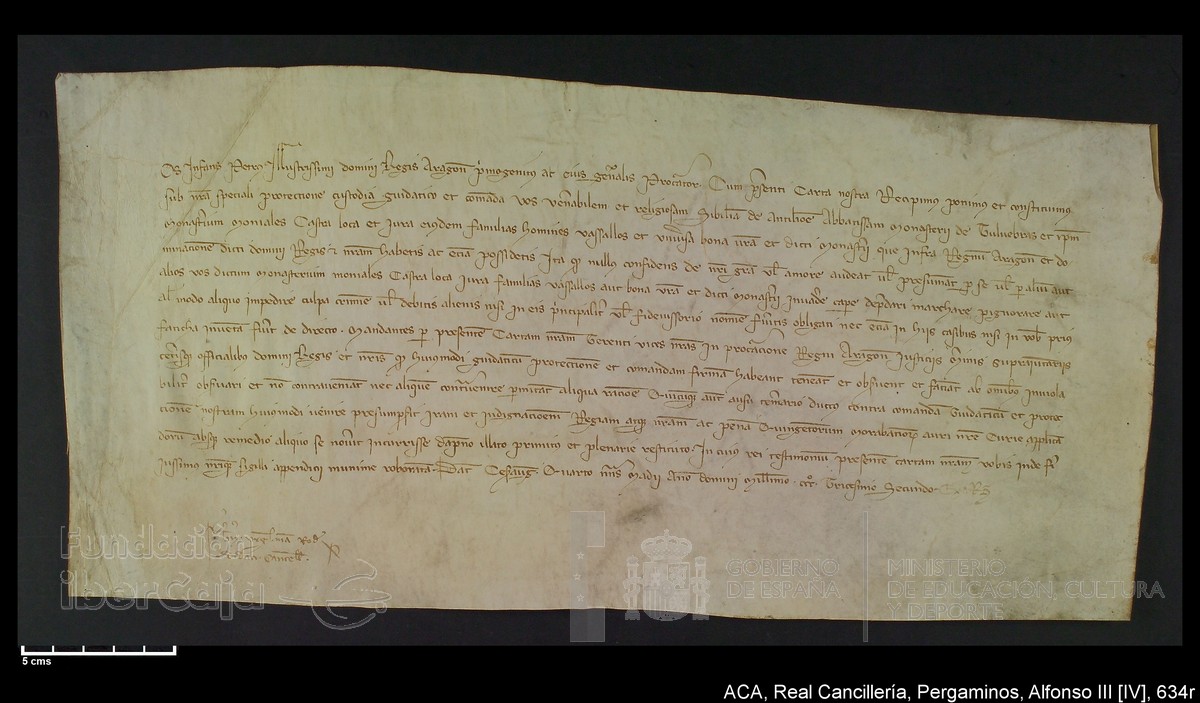 Os Infans Petrus Illustrissimi domini Regis Aragon primogenitus ac eius gnalis Procurator. Cum presenti Carta nostra Recipimus ponimus et constituimus
sub nra speciali protectione custodia guidatico et comanda vos venerabilem et religiosam Sibiliam de Antilione Abbatissam Monasterii de Tuluobras et ipm
Monasterium Moniales Castra loca et Jura eiusdem familias homines vassallos et universa bona vra et dicti Monastrii que infra Regnum Aragon et do
minatione dicti domini Regis & nram habetis ac etia possidetis Ita quod nullus confidens de nri gra vel amore audeat vel presumat per se vel per alium aut
alios vos dictum Monasterium moniales Castra loca Jura familias vassallos aut bona vra et dicti Monastrii invadere capere depdari marchare pignorare aut
al modo aliquo impedire culpa crimine vel debitis alienis nisi in eis principalitr vel fideiussorio nomine fueritis obligati nec etia in hiis casibus nisi in vob prius
faticha inventa fuit de directo. Mandantes per presente Cartam nram Gerenti vices nras in procuratione Regni Aragon Justiciis Merinis suprajunctariis
ceterisque officialibus domini Regis et nris quod huiusmodi guidaticu protectione et comandam firma habeant teneat et observent et faciat ab omibus inviola
biliter observari et no contraveniat nec aliquem contravenire permitat aliqua ratione Quicumque aut ausu temerario ductus contra comanda Guidaticu et protec
cione nostram huiusmodi venire presumpserit Iram et indignacioem Regiam atque nram ac pena Quingetorum morabatinor auri nre Curie applica
dorum absque remedio aliquo se noverit incurrisse dapno illato primitus et plenarie restituto. In cuius rei testimoniu presente cartam nram vobis inde fi
iussimus nrique sigilli appendicii munimine roborata. Dat Cesaraug. Quarto nonas Madii Ano domini Millimo. ccc. Tricesimo Secundo.
Fundación
iberCaja
GOBIERNO
DE ESPAÑA
MINISTERIO
DE EDUCACIÓN, CULTURA
Y DEPORTE
5 cms
ACA, Real Cancillería, Pergaminos, Alfonso III [IV], 634r